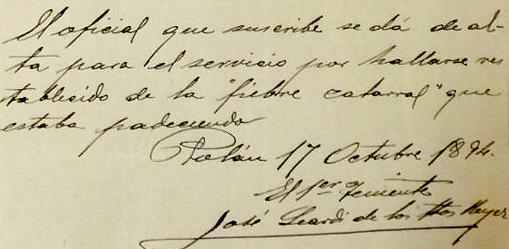 El oficial que suscribe se dá de al-
ta para el servicio por hallarse res
tablecido de la "fiebre catarral" que
estaba padeciendo
17 Octubre 1894.
El 1er Teniente
José de los Rey